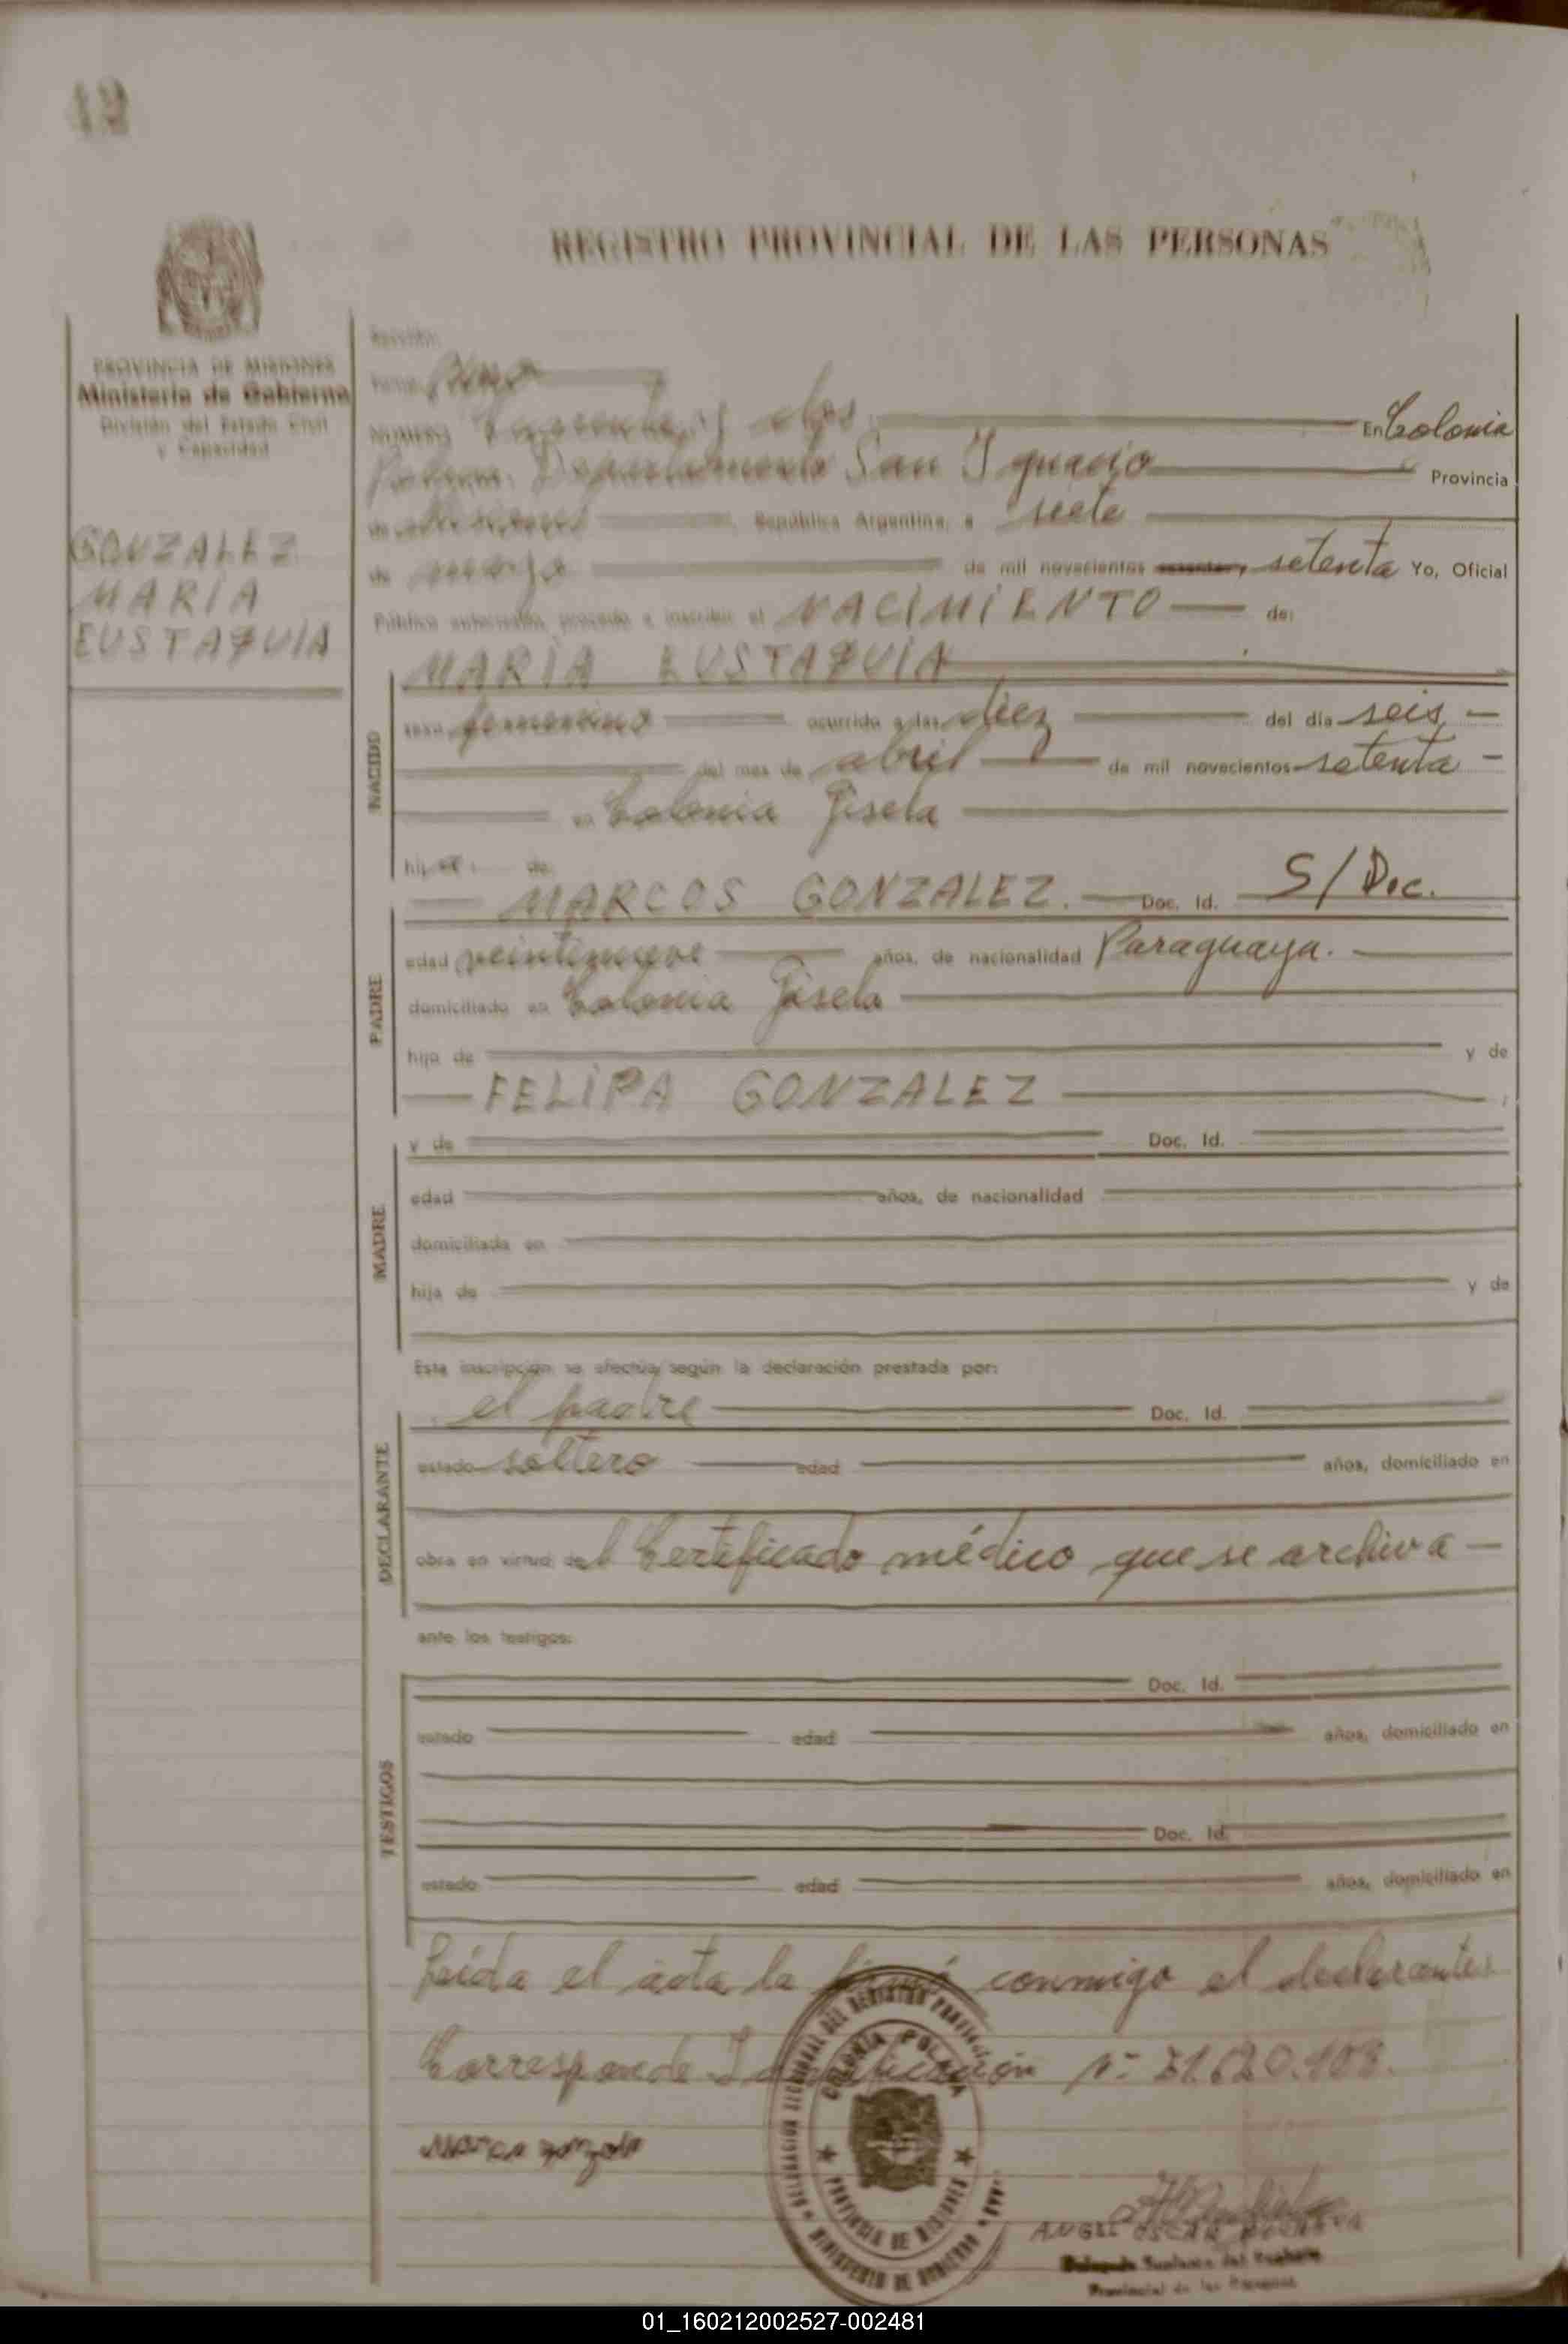 42
REGISTRO PROVINCIAL DE LAS PERSONAS
PROVINCIA DE MISIONES
Ministerio de Gobierno
División del Estado Civil
y Capacidad
GONZALEZ
MARIA
EUSTAQUIA
Sección
Tomo Uno
NUMERO Cuarenta y dos En Colonia
Polana Departamento San Ignacio Provincia
de Misiones República Argentina, a siete
de mayo de mil novecientos setenta Yo, Oficial
Público autorizado, procedo a inscribir el NACIMIENTO de:
MARIA EUSTAQUIA
NACIDO
sexo femenino ocurrido a las diez del día seis
del mes de abril de mil novecientos setenta
en Colonia Gisela
hij de:
MARCOS GONZALEZ. Doc. Id. S/Doc.
PADRE
edad veintinueve años, de nacionalidad Paraguaya.
domiciliado en Colonia Gisela
hijo de y de
FELIPA GONZALEZ
y de Doc. Id.
MADRE
edad años, de nacionalidad
domiciliada en
hija de y de
Esta inscripción se efectúa según la declaración prestada por:
el padre Doc. Id.
DECLARANTE
estado soltero edad años, domiciliado en
obra en virtud del Certificado médico que se archiva
ante los testigos:
Doc. Id.
TESTIGOS
estado edad años, domiciliado en
Doc. Id.
estado edad años, domiciliado en
Leída el acta la firmó conmigo el declarante
Corresponde Identificación Nº 21.620.108.
COLONIA POLANA
PROVINCIA DE MISIONES
MINISTERIO DE GOBIERNO
ANGEL OSCAR
Provincial de las Personas
01_160212002527-002481